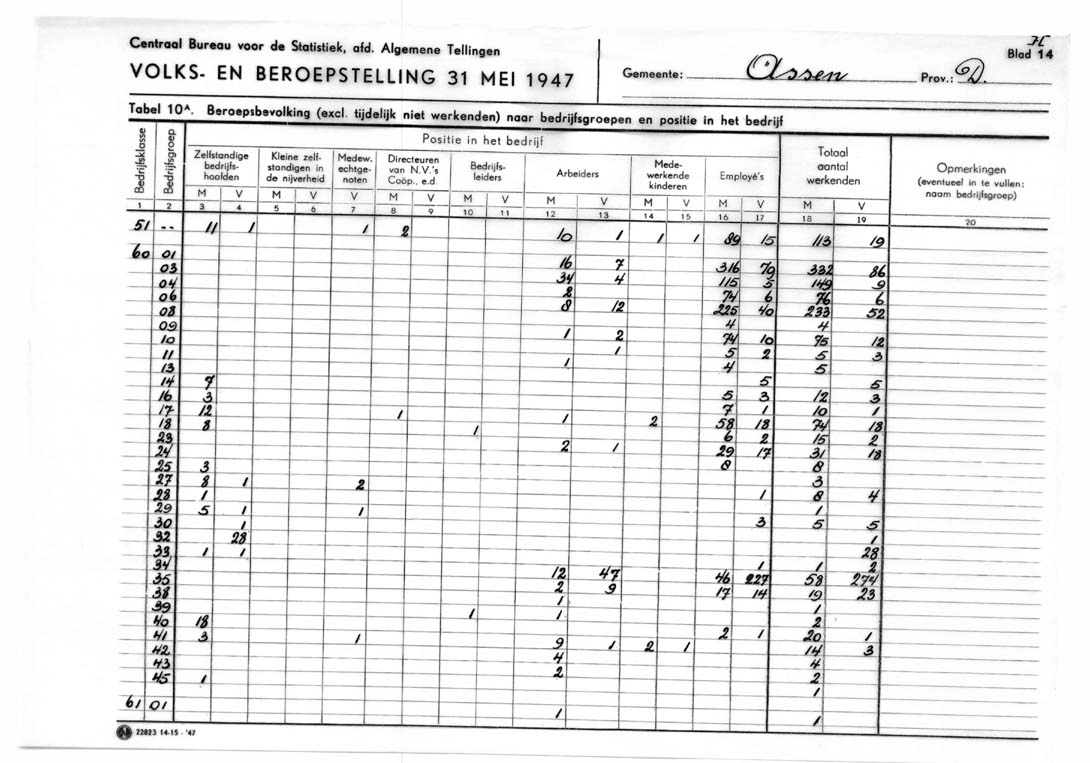 H
Centraal Bureau voor de Statistiek, afd. Algemene Tellingen
Blad 14
VOLKS- EN BEROEPSTELLING 31 MEI 1947
Gemeente: Assen Prov.: D.
Tabel 10A. Beroepsbevolking (excl. tijdelijk niet werkenden) naar bedrijfsgroepen en positie in het bedrijf
Bedrijfsklasse
Bedrijfsgroep
Positie in het bedrijf
Zelfstandige bedrijfs-hoofden
Kleine zelf-standigen in de nijverheid
Medew. echtge-noten
Directeuren van N.V.'s Coöp., e.d.
Bedrijfs-leiders
Arbeiders
Mede-werkende kinderen
Employé's
Totaal aantal werkenden
Opmerkingen (eventueel in te vullen: naam bedrijfsgroep)
M V M V V M V M V M V M V M V M V
1 2 3 4 5 6 7 8 9 10 11 12 13 14 15 16 17 18 19 20
51 -- 11 1 1 2 10 1 1 1 89 15 113 19
60 01 16 7 316 79 332 86
03 34 4 115 5 149 9
04 2 74 6 76 6
06 8 12 225 40 233 52
08 4 4
09 1 2 74 10 75 12
10 1 5 2 5 3
11 1 4 5
13 5 5
14 7 5 3 12 3
16 3 7 1 10 1
17 12 1 1 2 58 18 74 18
18 8 1 6 2 15 2
23 2 1 29 17 31 18
24 8 8
25 3 3
27 8 1 2 1 8 4
28 1 1
29 5 1 1 3 5 5
30 1 1
32 28 28
33 1 1 1 1 2
34 12 47 46 227 58 274
35 2 9 17 14 19 23
38 1 1
39 1 1 2
40 18 2 1 20 1
41 3 1 9 1 2 1 14 3
42 4 4
43 2 2
45 1 1
61 01 1 1
22823 14-15 - '47